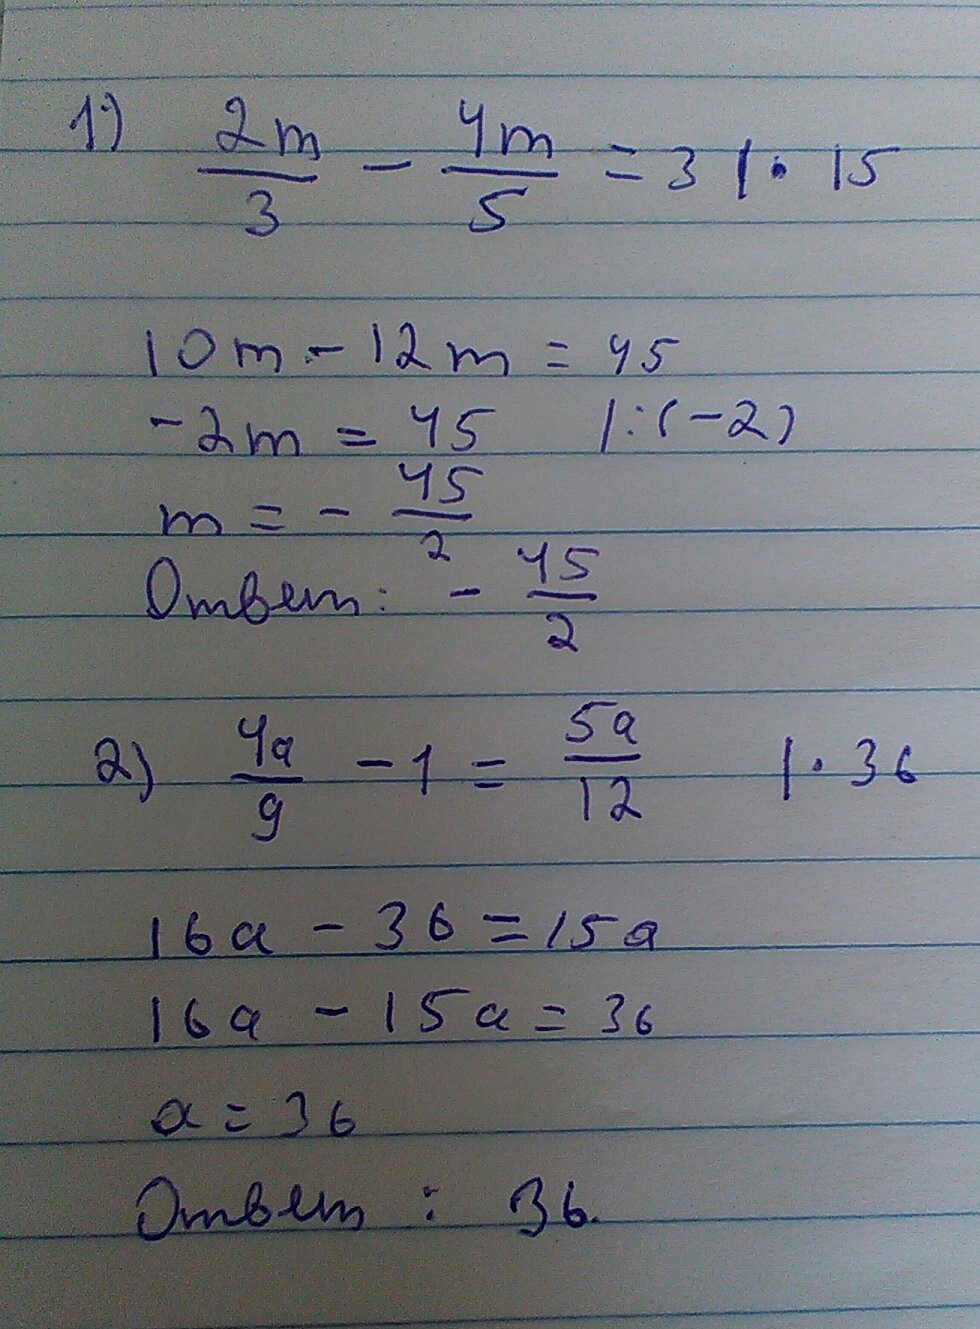 1) 2m/3 - 4m/5 = 3 |· 15
10m - 12m = 45
-2m = 45 |:(-2)
m = - 45/2
Ответ: - 45/2
2) 4a/9 - 1 = 5a/12 |· 36
16a - 36 = 15a
16a - 15a = 36
a = 36
Ответ: 36.